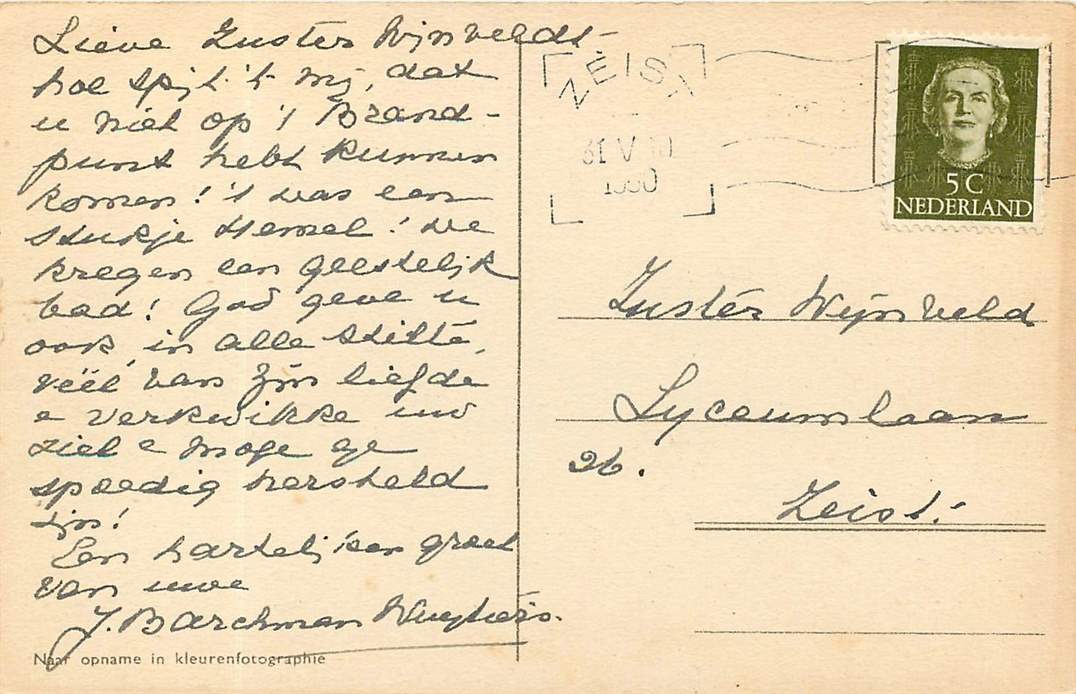 Lieve Zuster Wijnveldt-
hoe spijt 't mij, dat
u niet op 't Brand-
punt hebt kunnen
komen! 't was een
stukje Hemel! We
kregen een geestelijk
bad! God geve u
ook, in alle stilte,
véél van Zijn liefde
e verkwikke uw
ziel e moge ge
spoedig hersteld
zijn!
Een hartelijken groet
van uwe
J. Barchman Wuytiers.
Naar opname in kleurenfotographie
ZEIST
31 V
1950
5 C
NEDERLAND
Zuster Wijnveld
Lyceumlaan
26.
Zeist.